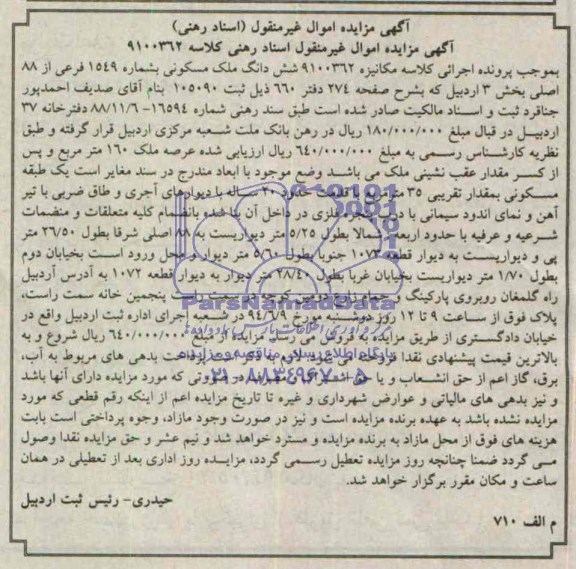 آگهی مزایده اموال غیرمنقول (اسناد رهنی)
آگهی مزایده اموال غیرمنقول اسناد رهنی کلاسه ۹۱۰۰۳۶۲
بموجب پرونده اجرائی کلاسه مکانیزه ۹۱۰۰۳۶۲ شش دانگ ملک مسکونی بشماره ۱۵۴۹ فرعی از ۸۸
اصلی بخش ۳ اردبیل که بشرح صفحه ۲۷۴ دفتر ۶۶۰ ذیل ثبت ۱۰۵۰۹۰ بنام آقای صدیف احمدپور
جناقرد ثبت و اسناد مالکیت صادر شده است طبق سند رهنی شماره ۱۶۵۹۴- ۸۸/۱۱/۶ دفترخانه ۳۷
اردبیل در قبال مبلغ ۱۸۰/۰۰۰/۰۰۰ ریال در رهن بانک ملت شعبه مرکزی اردبیل قرار گرفته و طبق
نظریه کارشناس رسمی به مبلغ ۶۴۰/۰۰۰/۰۰۰ ریال ارزیابی شده عرصه ملک ۱۶۰ متر مربع و پس
از کسر مقدار عقب نشینی ملک می باشد وضع موجود با ابعاد مندرج در سند مغایر است یک طبقه
مسکونی بمقدار تقریبی ۳۵ متر مربع با قدمت حدود ۲۰ ساله با دیوارهای آجری و طاق ضربی با تیر
آهن و نمای اندود سیمانی با درب پنجره فلزی در داخل آن بنا شده بانضمام کلیه متعلقات و منضمات
شرعیه و عرفیه با حدود اربعه: شمالا بطول ۵/۲۵ متر دیواریست به ۸۸ اصلی شرقا بطول ۲۶/۵۰ متر
پی و دیواریست به دیوار قطعه ۱۰۷۴ جنوبا بطول ۵/۶۰ متر دیوار و محل ورود است بخیابان دوم
بطول ۱/۷۰ متر دیواریست بخیابان غربا بطول ۲۸/۴۰ متر دیوار به دیوار قطعه ۱۰۷۲ به آدرس اردبیل
راه گلمغان روبروی پارکینگ و دومین کوچه پنجمین خانه سمت راست،
پلاک فوق از ساعت ۹ تا ۱۲ روز دوشنبه مورخ ۹۴/۶/۹ در شعبه اجرای اداره ثبت اردبیل واقع در
خیابان دادگستری از طریق مزایده به فروش می رسد. مزایده از مبلغ ۶۴۰/۰۰۰/۰۰۰ ریال شروع و به
بالاترین قیمت پیشنهادی نقدا فروخته می شود. لازم به ذکر است پرداخت بدهی های مربوط به آب،
برق، گاز اعم از حق انشعاب و یا حق اشتراک و مصرف در صورتی که مورد مزایده دارای آنها باشد
و نیز بدهی های مالیاتی و عوارض شهرداری و غیره تا تاریخ مزایده اعم از اینکه رقم قطعی که مورد
مزایده نشده باشد به عهده برنده مزایده است و نیز در صورت وجود مازاد، وجوه پرداختی است بابت
هزینه های فوق از محل مازاد به برنده مزایده و مسترد خواهد شد و نیم عشر و حق مزایده نقدا وصول
می گردد ضمنا چنانچه روز مزایده تعطیل رسمی گردد، مزایده روز اداری بعد از تعطیلی در همان
ساعت و مکان مقرر برگزار خواهد شد.
حیدری- رئیس ثبت اردبیل
م الف ۷۱۰
ParsNamadData
پایگاه اطلاع رسانی مناقصه و مزایده
۰۲۱-۸۸۳۴۹۶۷۰-۵